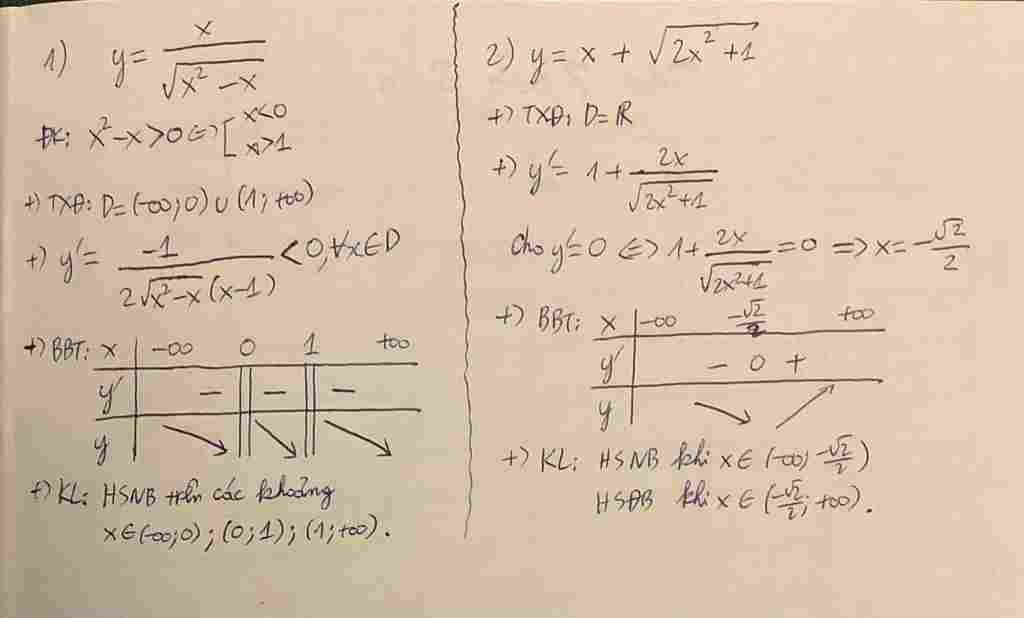 1) y = x / √(x² - x)
ĐK: x² - x > 0 ⇔ [ x < 0
x > 1
+) TXĐ: D = (-∞; 0) ∪ (1; +∞)
+) y' = -1 / (2√(x² - x) (x - 1)) < 0, ∀x ∈ D
+) BBT: x -∞ 0 1 +∞
y' - - -
y
+) KL: HSNB trên các khoảng
x ∈ (-∞; 0) ; (0; 1) ; (1; +∞).
2) y = x + √(2x² + 1)
+) TXĐ: D = ℝ
+) y' = 1 + 2x / √(2x² + 1)
Cho y' = 0 ⇔ 1 + 2x / √(2x² + 1) = 0 ⇒ x = -√2 / 2
+) BBT: x -∞ -√2/2 +∞
y' - 0 +
y
+) KL: HSNB khi x ∈ (-∞; -√2/2)
HSĐB khi x ∈ (-√2/2; +∞).